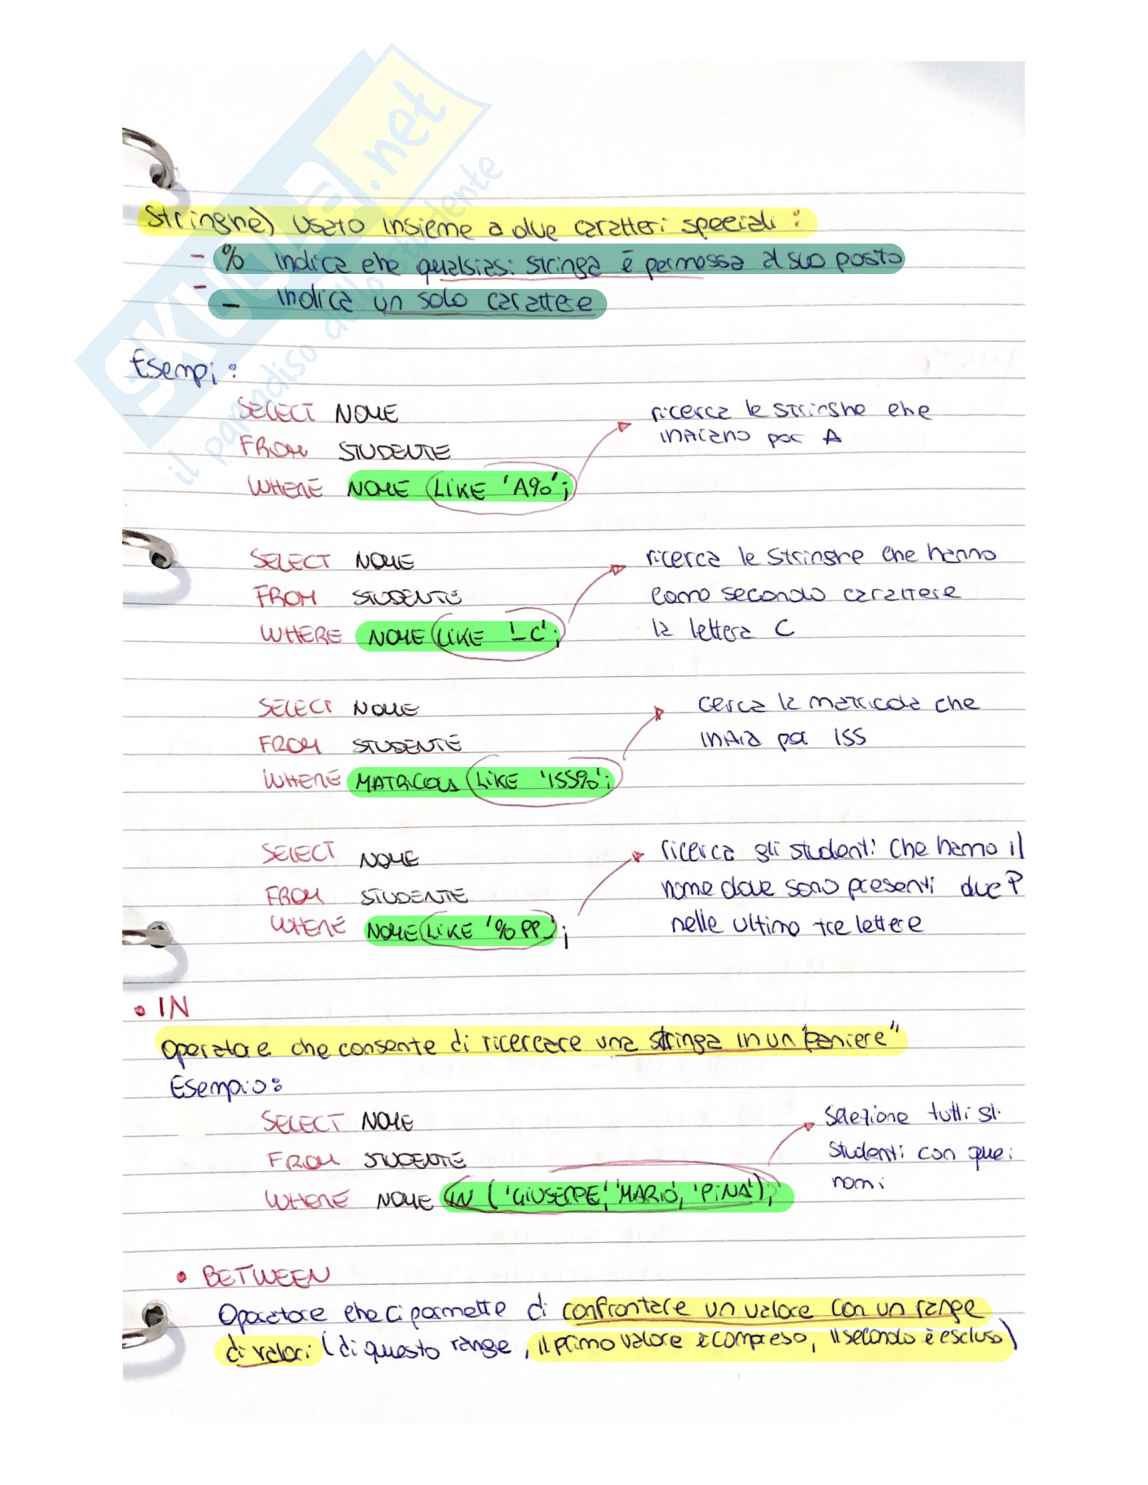 SKUOLA.net
il paradiso dello studente
stringhe) usato insieme a due caratteri speciali :
- % indica che qualsiasi stringa è permessa al suo posto
- _ indica un solo carattere
Esempi :
SELECT NOME
FROM STUDENTE
WHERE NOME LIKE 'A%';
ricerca le stringhe che
iniziano per A
SELECT NOME
FROM STUDENTE
WHERE NOME LIKE '_C';
ricerca le stringhe che hanno
come secondo carattere
la lettera C
SELECT NOME
FROM STUDENTE
WHERE MATRICOLA LIKE 'ISS%';
cerca la matricola che
inizia per ISS
SELECT NOME
FROM STUDENTE
WHERE NOME LIKE '%PP_';
ricerca gli studenti che hanno il
nome dove sono presenti due P
nelle ultime tre lettere
• IN
Operatore che consente di ricercare una stringa in un "paniere"
Esempio:
SELECT NOME
FROM STUDENTE
WHERE NOME IN ('GIUSEPPE', 'MARIO', 'PINA');
Selezione tutti gli
studenti con quei
nomi
• BETWEEN
Operatore che ci permette di confrontare un valore con un range
di valori (di questo range, il primo valore è compreso, il secondo è escluso)